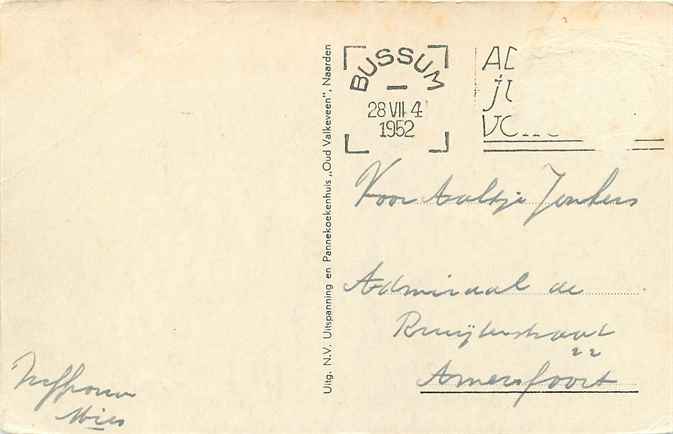 Uitg. N.V. Uitspanning en Pannekoekenhuis „Oud Valkeveen”, Naarden
BUSSUM
28 VII 4
1952
Voor Aaltje Jonkers
Admiraal de
Ruijterstraat
22
Amersfoort
Juffrouw
Mies